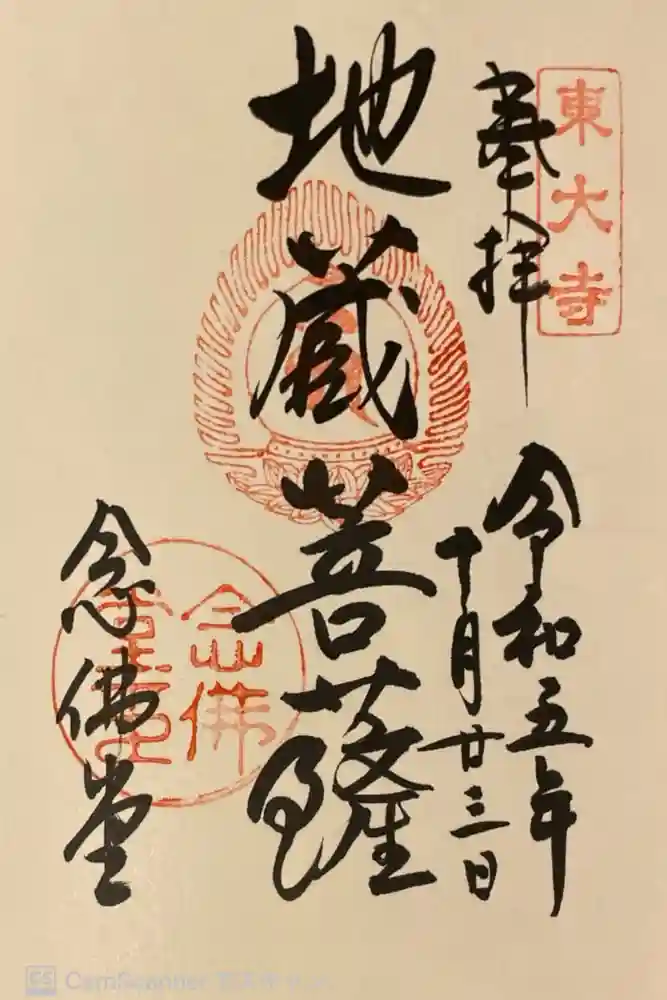 東大寺
奉拝
令和五年
十月廿三日
地蔵菩薩
念佛堂
念佛
CS CamScanner